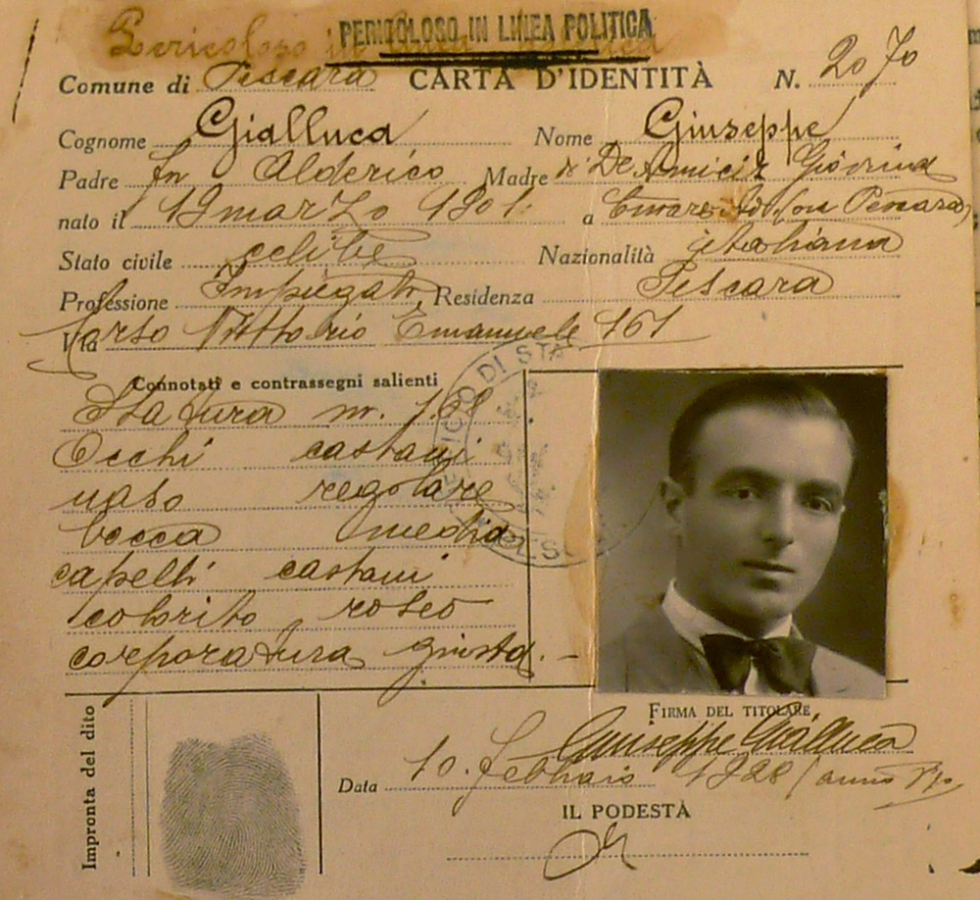 Pericoloso in linea politica
PERICOLOSO IN LINEA POLITICA
Comune di Pescara CARTA D'IDENTITÀ N. 2070
Cognome Gialluca Nome Giuseppe
Padre fu Alderico Madre di De Amicis Giovina
nato il 19 marzo 1901 a (Pescara)
Stato civile celibe Nazionalità italiana
Professione Impiegato Residenza Pescara
Via Corso Vittorio Emanuele 161
Connotati e contrassegni salienti
Statura m. 1.68
Occhi castani
naso regolare
bocca media
capelli castani
colorito roseo
corporatura giusta. -
FIRMA DEL TITOLARE
Giuseppe Gialluca
Impronta del dito
Data 10 febbraio 1928 (anno
IL PODESTÀ